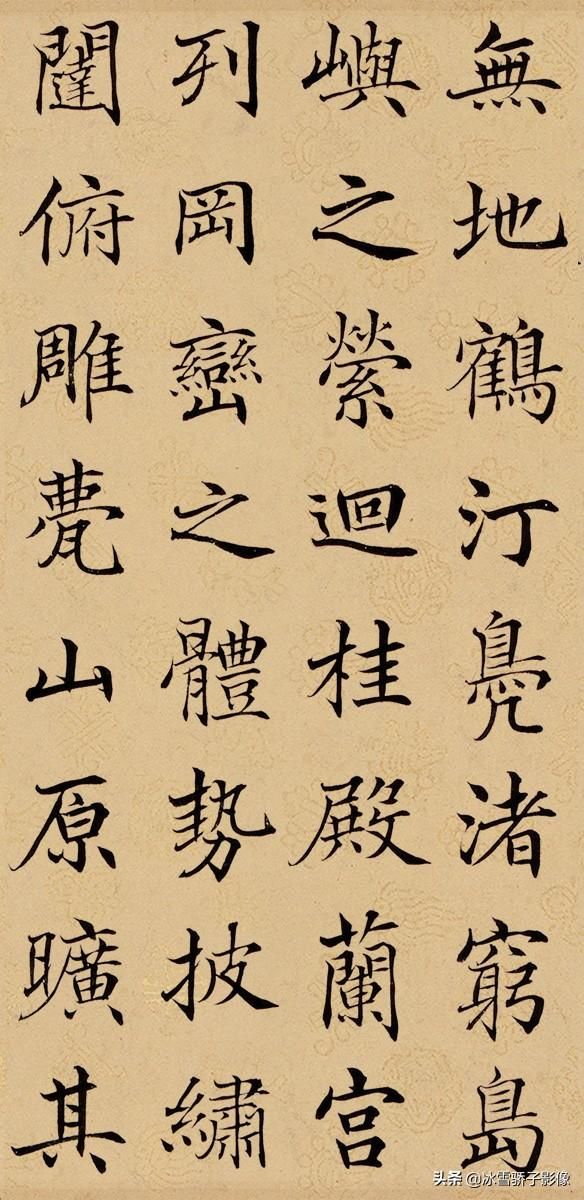 無地鶴汀鳧渚窮島
嶼之縈迴桂殿蘭宮
列岡巒之體勢披繡
闥俯雕甍山原曠其
头条 @冰雪骄子影像